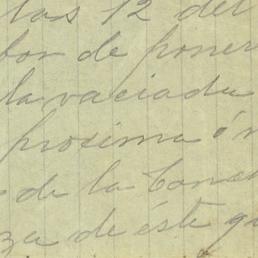 las 12 del
bor de poner
la vaciada
proxima ó
de la Cons
za de éste q